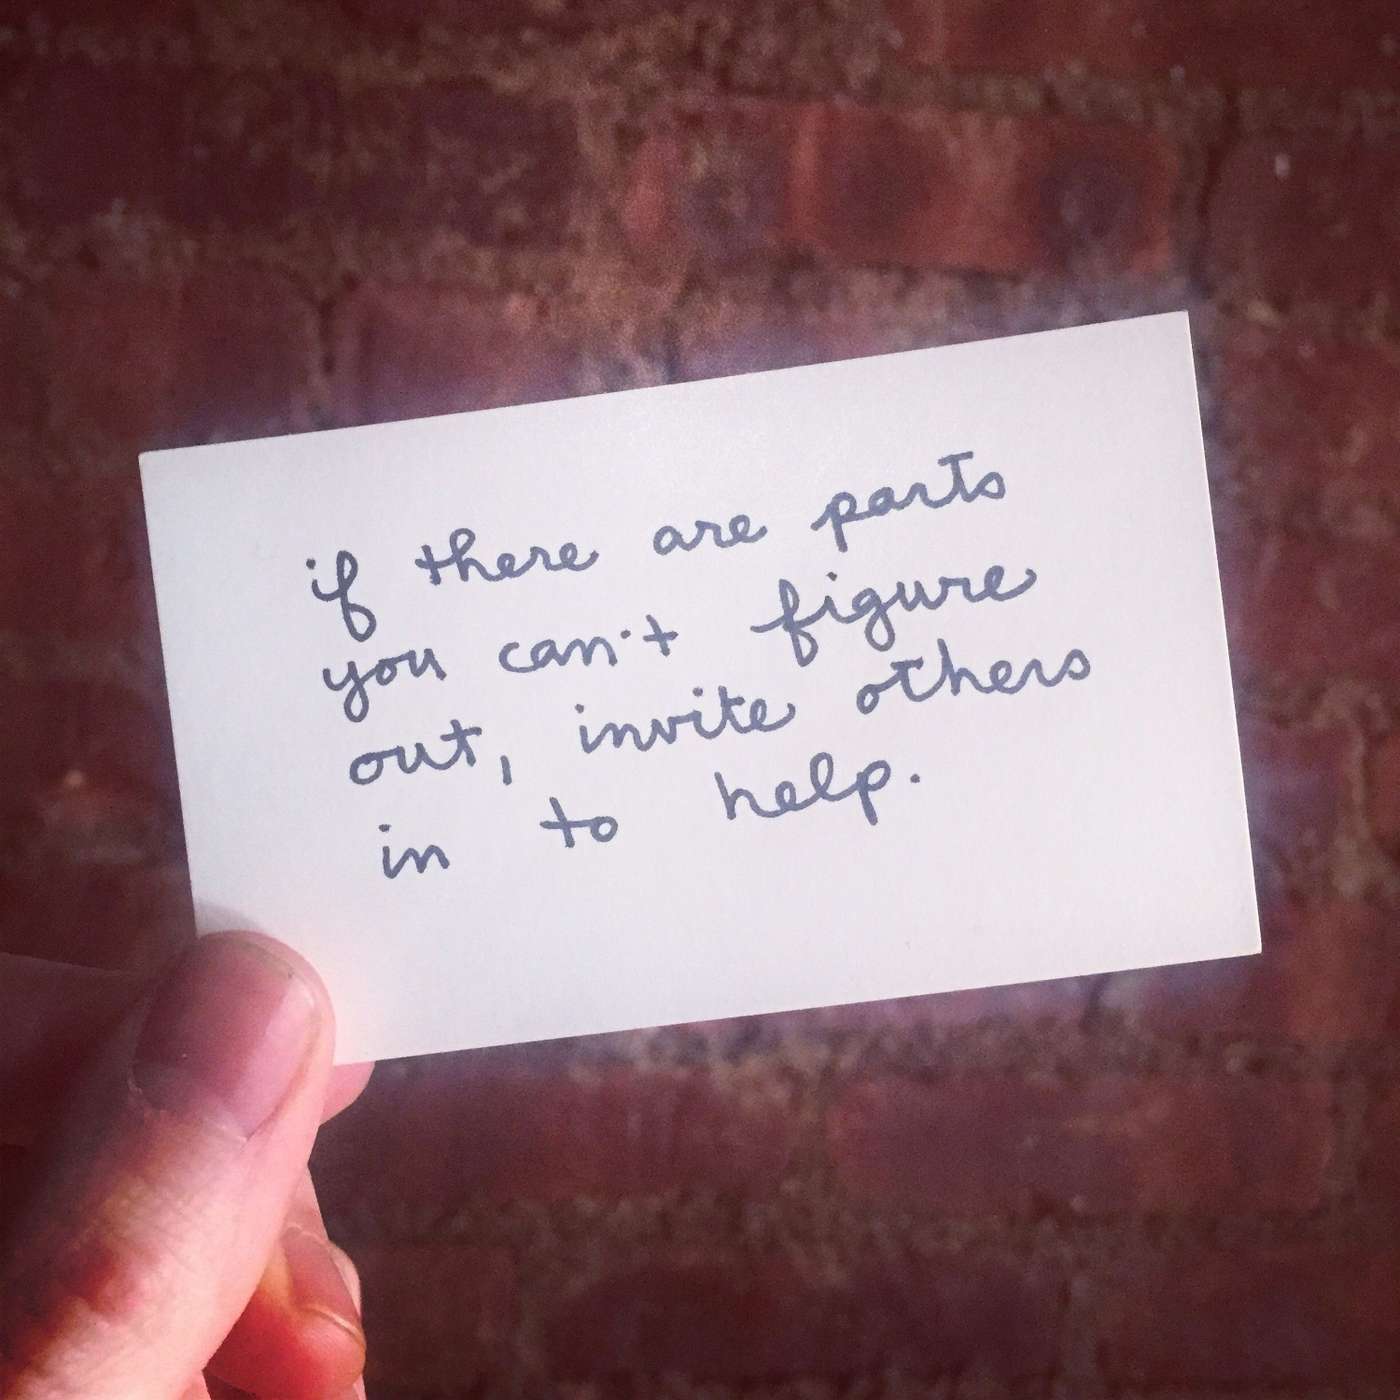 if there are parts
you can't figure
out, invite others
in to help.